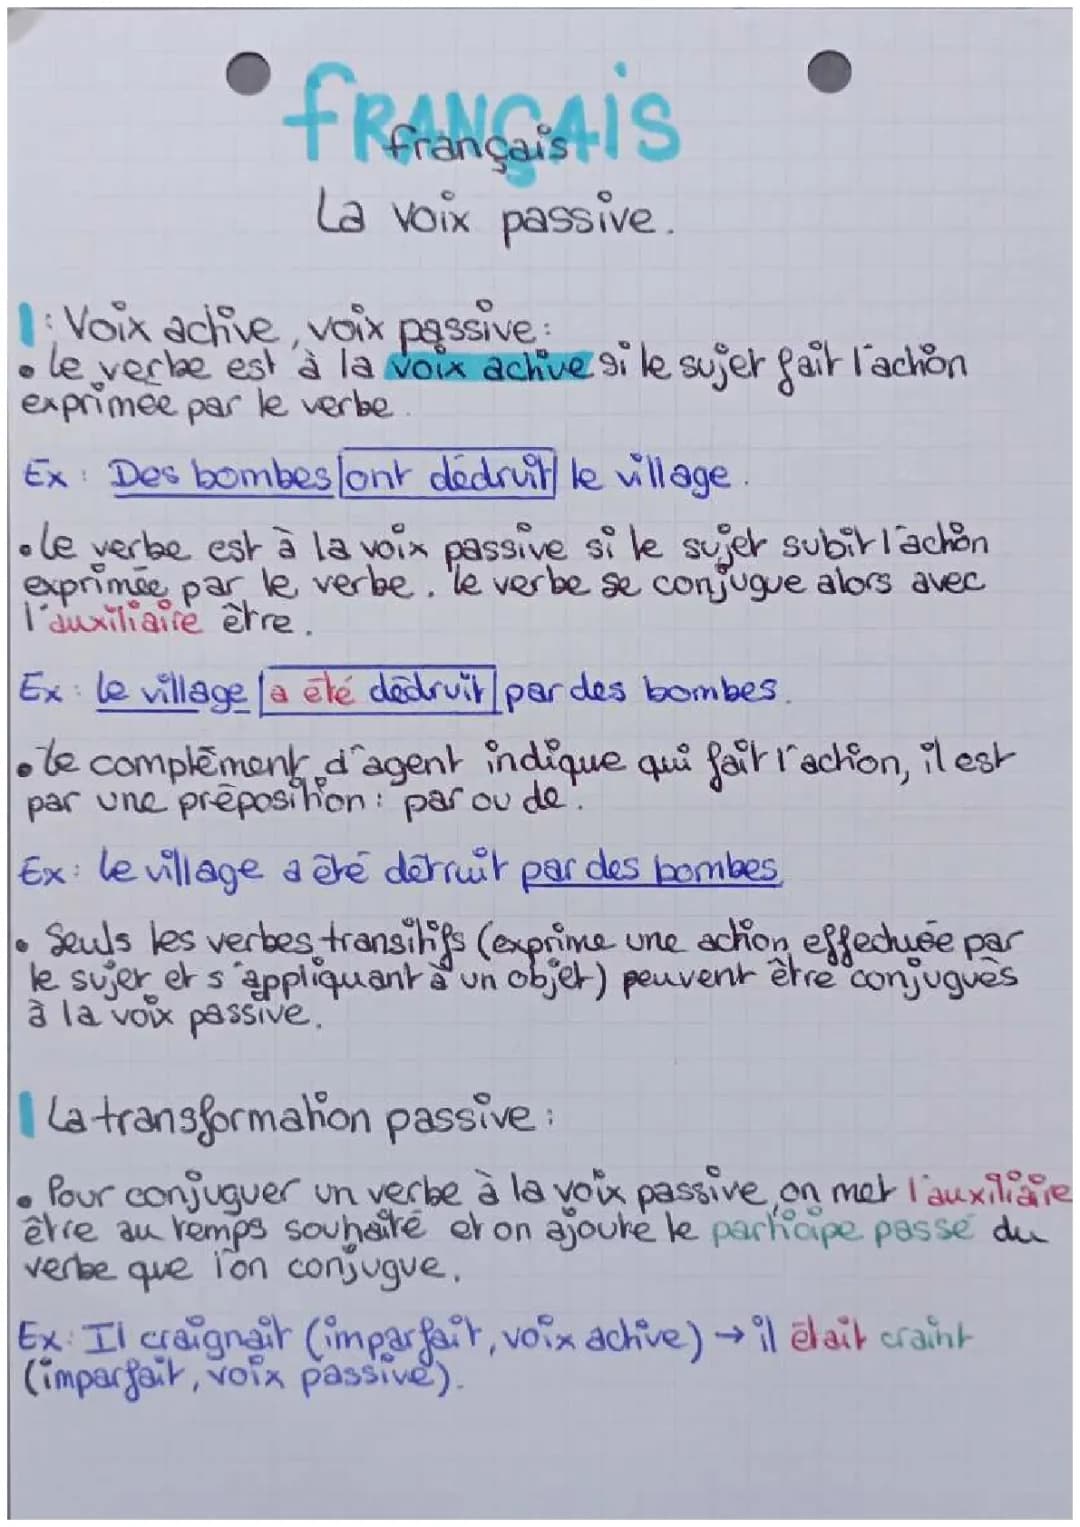 fRANÇAIS
français
La voix passive.
I : Voix active, voix passive :
• le verbe est à la voix active si le sujet fait l'action
exprimée par le verbe.
Ex : Des bombes ont dédruit le village.
• le verbe est à la voix passive si le sujet subit l'action
exprimée par le verbe. le verbe se conjugue alors avec
l'auxiliaire être.
Ex : le village a été dédruit par des bombes.
• le complément d'agent indique qui fait l'action, il est
par une préposition : par ou de.
Ex : le village a été détruit par des bombes.
• Seuls les verbes transitifs (exprime une action effectuée par
le sujet et s'appliquant à un objet) peuvent être conjugués
à la voix passive.
I La transformation passive :
• Pour conjuguer un verbe à la voix passive, on met l'auxiliaire
être au temps souhaité et on ajoute le participe passé du
verbe que l'on conjugue.
Ex : Il craignait (imparfait, voix active) → il était craint
(imparfait, voix passive).